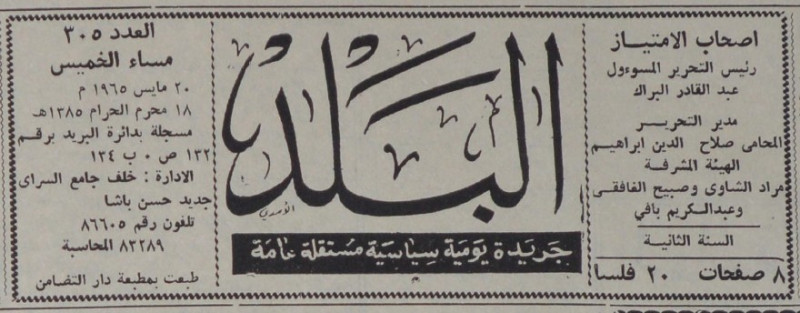 اصحاب الامتياز
رئيس التحرير المسوءول
عبد القادر البراك
مدير التحرير
المحامى صلاح الدين ابراهيم
الهيئة المشرفة
مراد الشاوى وصبيح الغافقى
وعبدالكريم بافي
السنة الثانية
٨ صفحات ٢٠ فلسا
البلد
جريدة يومية سياسية مستقلة عامة
العدد ٣٠٥
مساء الخميس
٢٠ مايس ١٩٦٥ م
١٨ محرم الحرام ١٣٨٥هـ
مسجلة بدائرة البريد برقم
١٣٢ ص ٠ ب ١٣٤
الادارة : خلف جامع السراى
جديد حسن باشا
تلفون رقم ٨٦٦٠٥
٨٣٢٨٩ المحاسبة
طبعت بمطبعة دار التضامن